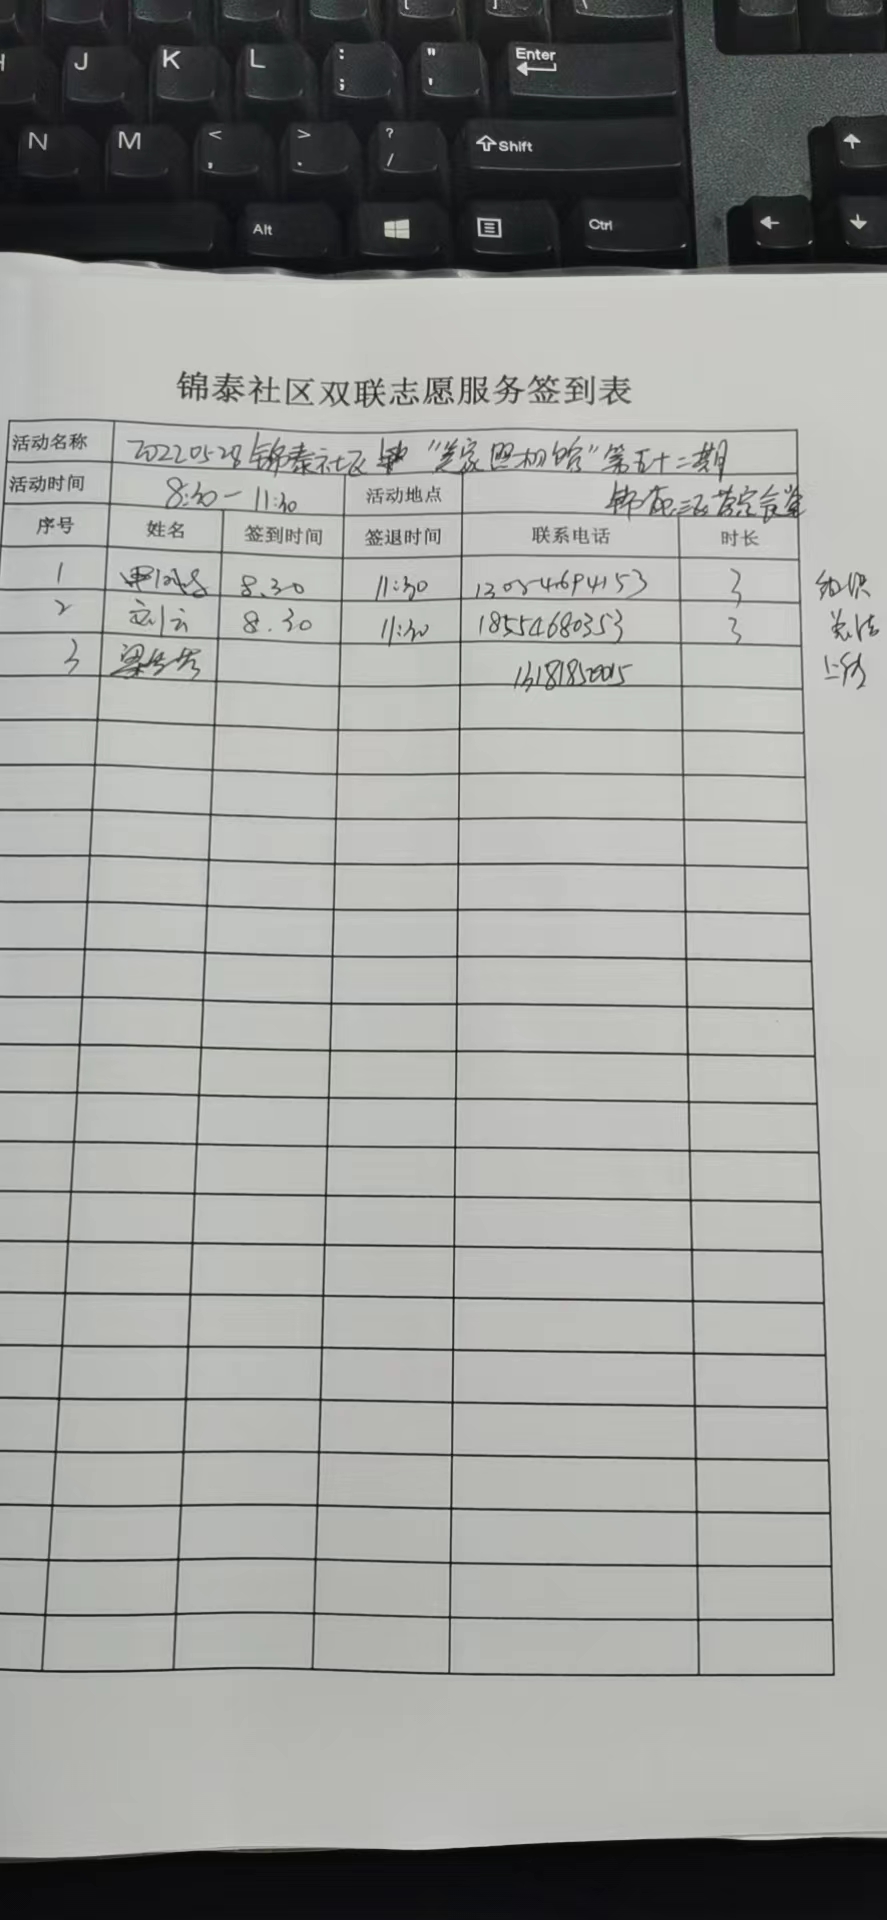 J K L : ; " ' Enter
N M < , > . ? / Shift
Alt Ctrl
锦泰社区双联志愿服务签到表
活动名称 20220528锦泰社区 照相馆"第五十二期
活动时间 8:30-11:30 活动地点
序号 姓名 签到时间 签退时间 联系电话 时长
1 8.30 11:30 13054694153 3 组织
2 刘云 8.30 11:30 18554680353 3
3 13181850015